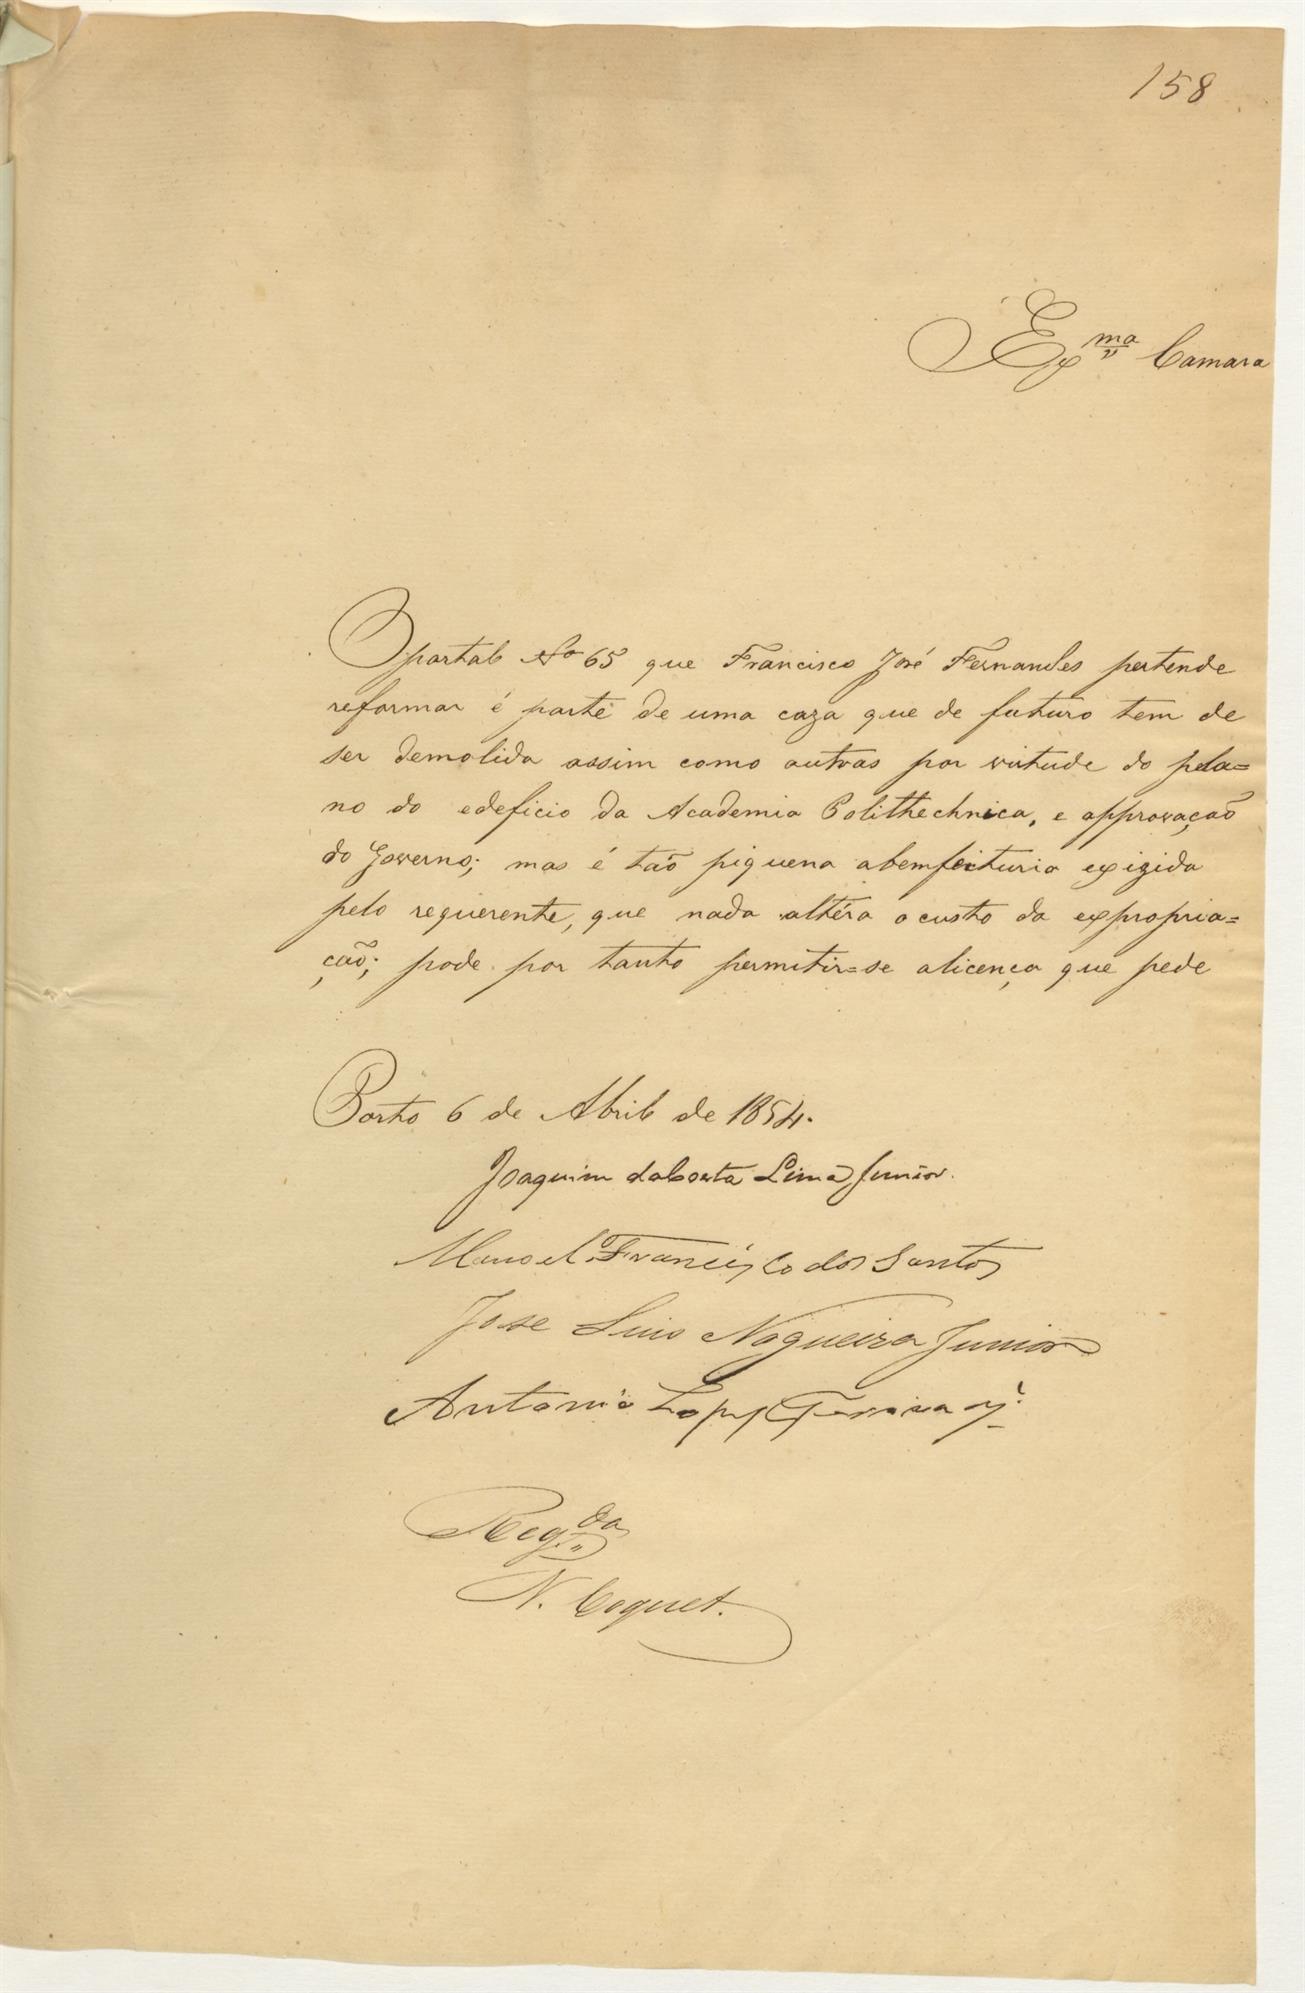 158
Exma Camara
O portal No 65 que Francisco José Fernandes pertende
reformar é parte de uma caza que de futuro tem de
ser demolida assim como outras por virtude do pela=
no do edeficio da Academia Polithechnica, e approvação
do Governo; mas é tão piquena abemfeituria exigida
pelo requerente, que nada altéra o custo da expropria=
ção; pode por tanto permitir=se alicença que pede
Porto 6 de Abril de 1854.
Joaquim daCosta Lima Junior.
Manoel Francisco dos Santos
Jose Luis Nogueira Junior
Antonio Lopes Ferreira Jr
Regda
N. Coquet.